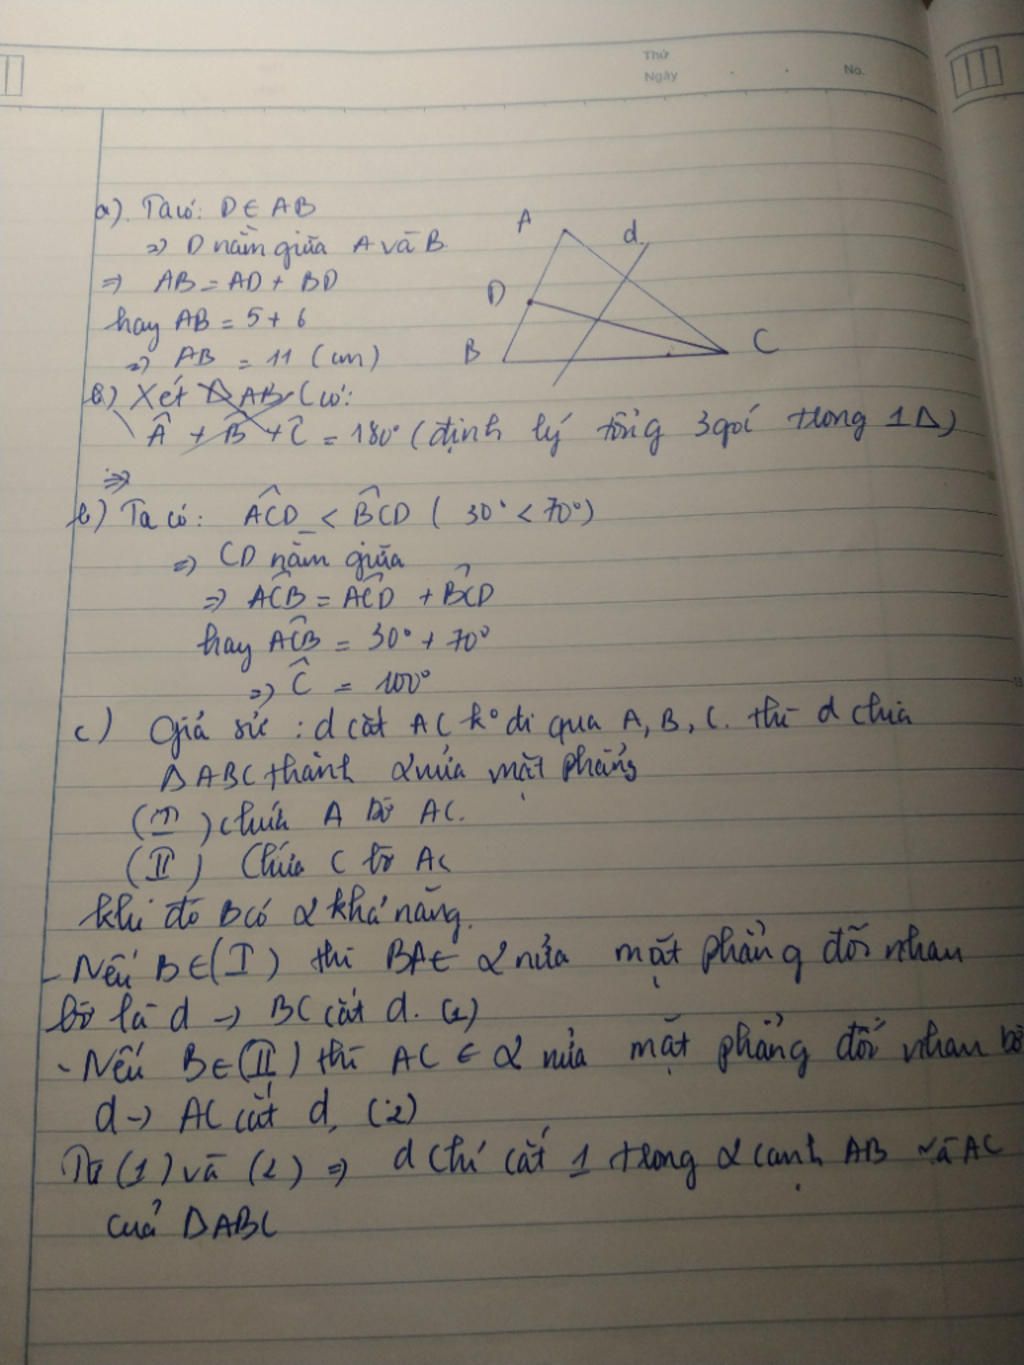 Thứ
Ngày . . No.
a). Ta có: D ∈ AB
=> D nằm giữa A và B
=> AB = AD + BD
hay AB = 5 + 6
=> AB = 11 (cm)
A
d
D
B
C
b) Xét ΔABC có:
Â + B̂ + Ĉ = 180° (định lý tổng 3 goí trong 1Δ)
=>
b) Ta có: ACD < BCD ( 30° < 70°)
=> CD nằm giữa
=> ACB = ACD + BCD
hay ACB = 30° + 70°
=> Ĉ = 100°
c) Giả sử : d cắt AC k° đi qua A, B, C. thì d chia
ΔABC thành 2 nửa mặt phẳng
(I) chứa A bờ AC.
(II) Chứa C bờ AC
khi đó B có 2 khả năng.
- Nếu B ∈ (I) thì BA ∈ 2 nửa mặt phẳng đối nhau
bờ là d -> BC cắt d. (1)
- Nếu B ∈ (II) thì AC ∈ 2 nửa mặt phẳng đối nhau bờ
d -> AC cắt d, (2)
Từ (1) và (2) => d chỉ cắt 1 trong 2 cạnh AB và AC
của ΔABC